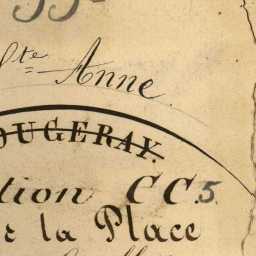 Ste Anne
OUGERAY.
tion CC.5.
e la Place